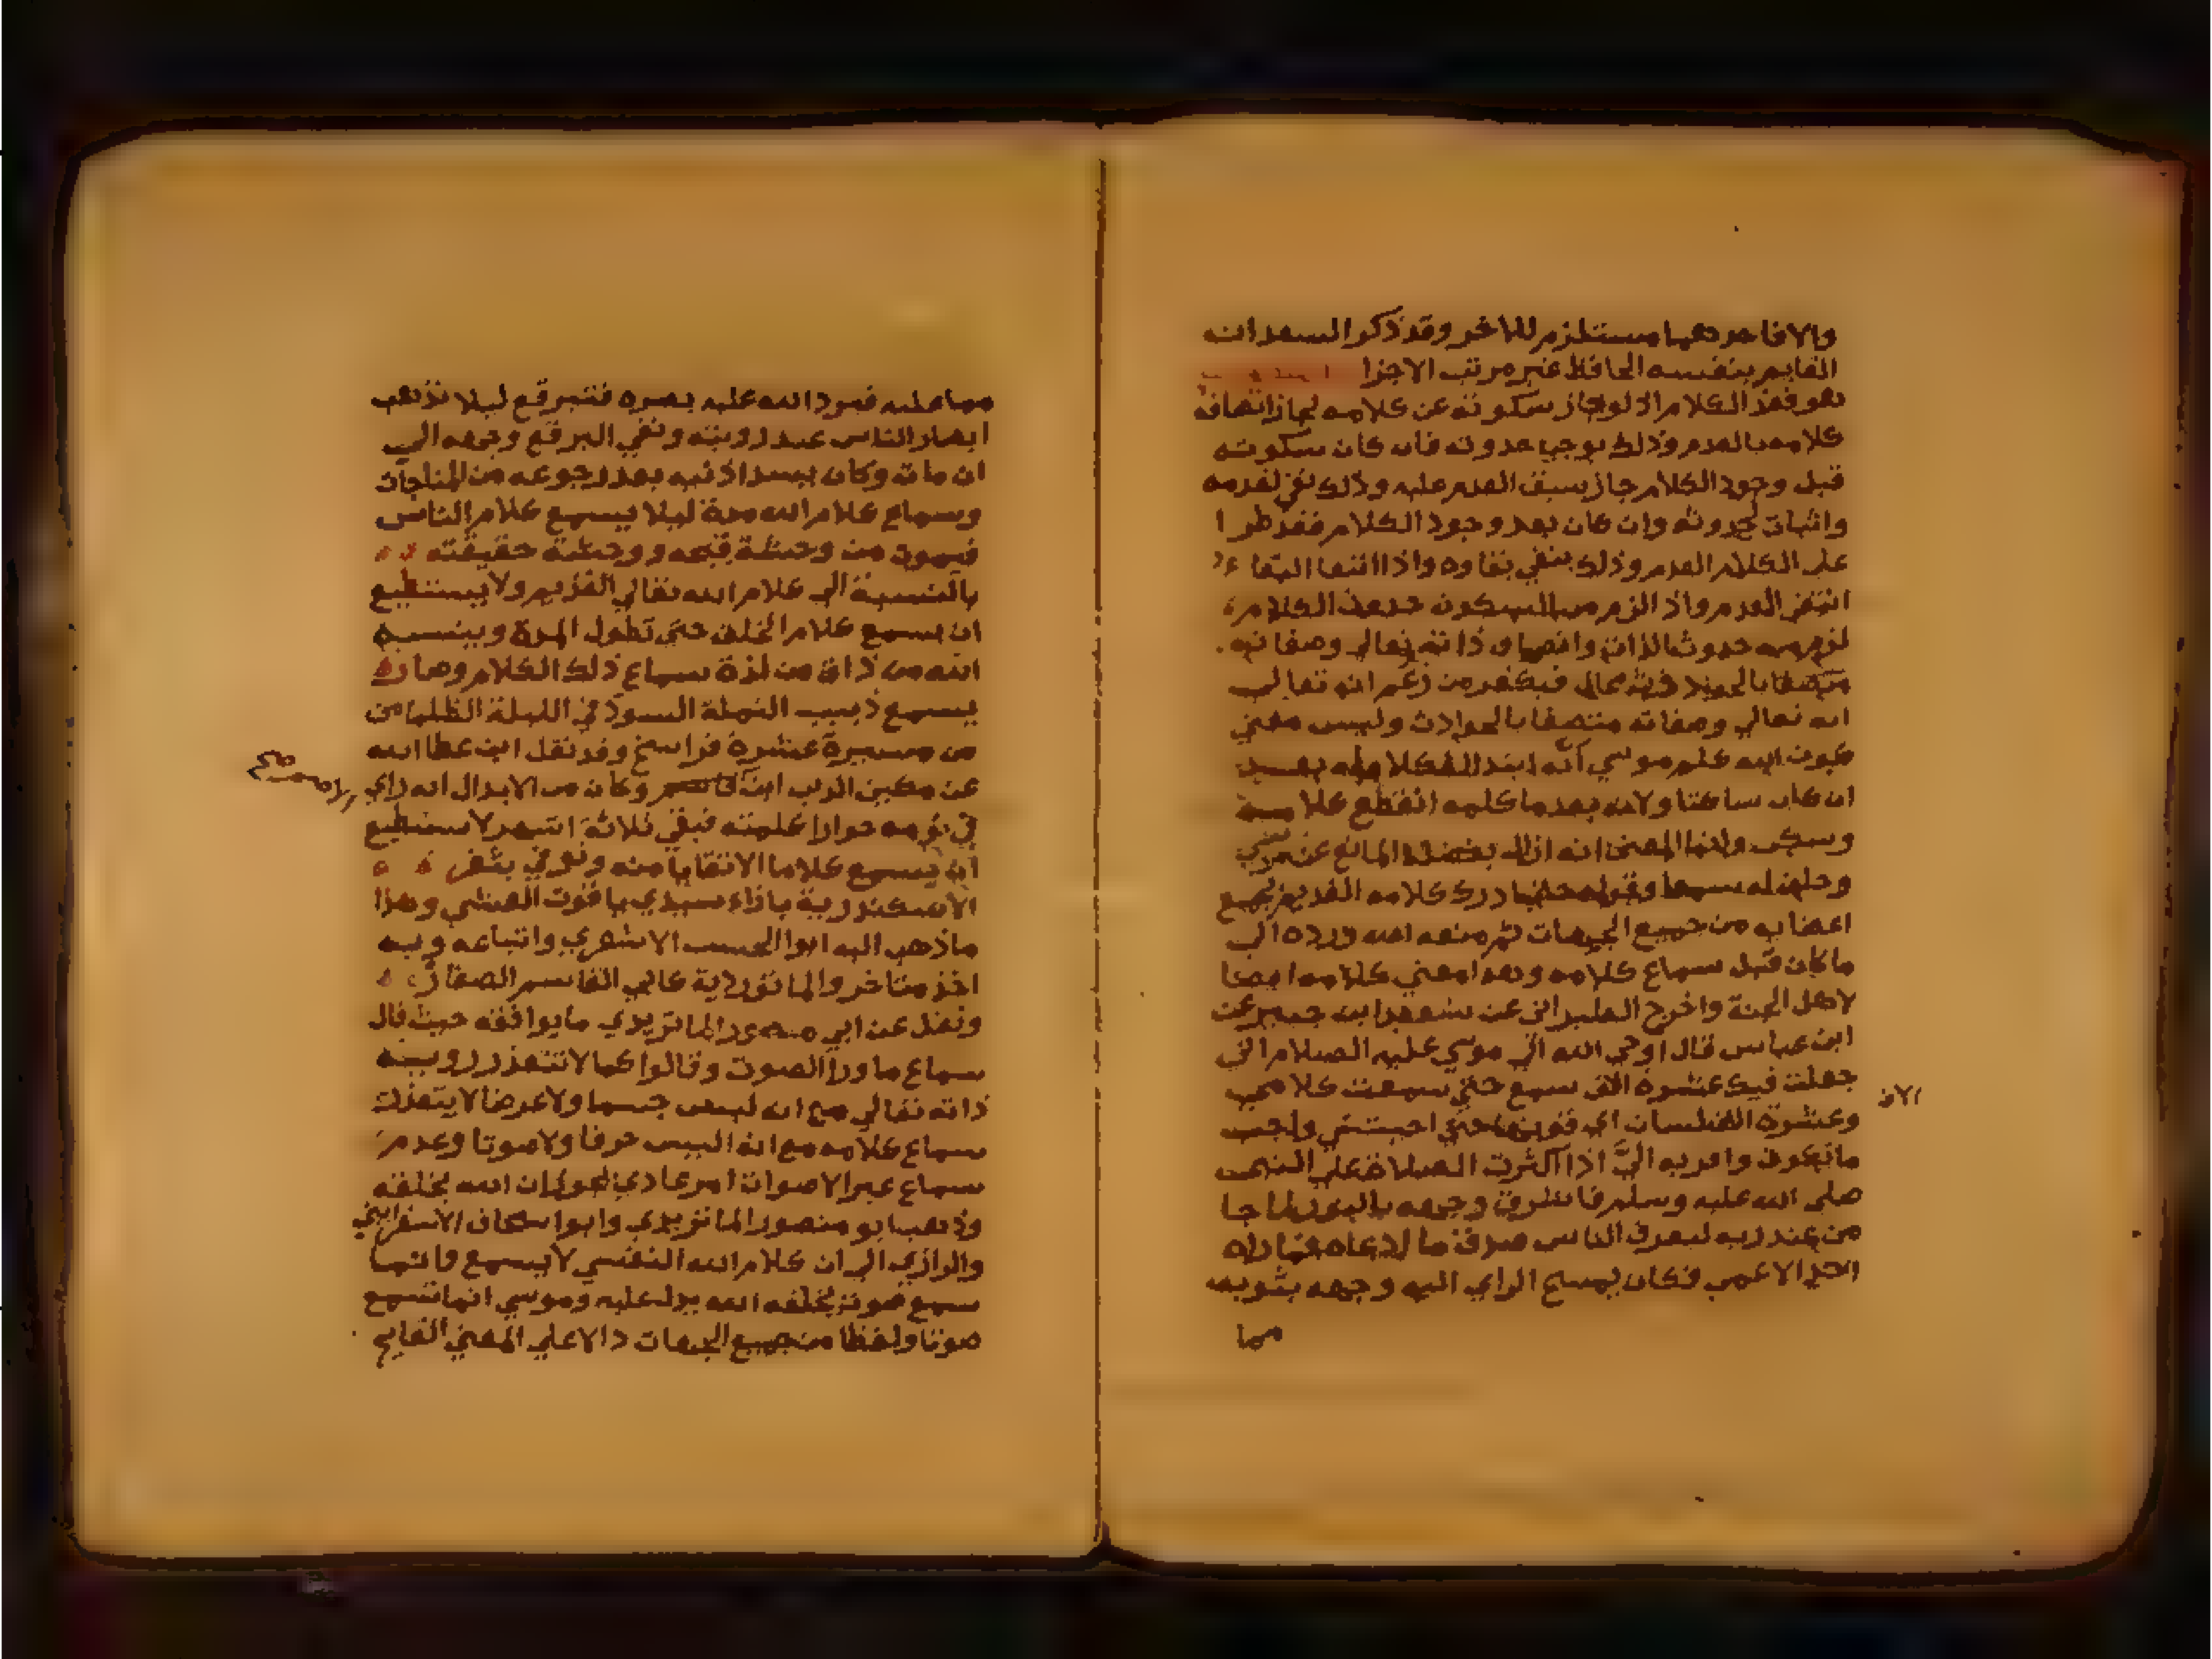 والا فاحدهما مستلزم للاخر وقد ذكر السعد انه
القايم بنفسه الحافظ غير مرتب الاجزا
هو فقد الكلام اذ لو جاز سكوته عن كلامه لجاز اتصاف
كلامه بالعدم وذلك يوجب حدوثه فان كان سكوته
قبل وجود الكلام جاز سبق العدم عليه وذلك نفي لقدمه
واثبات لحدوثه وان كان بعد وجود الكلام فقد طرا
على الكلام العدم وذلك ينفي بقاوه واذا انتفا البقا
انتفى القدم واذ الزم من السكون حدوث الكلام
لزم منه حدوث الذات واتصاف ذاته تعالى وصفاته
محال فيكفر من زعم انه تعالى
انه تعالي وصفاته متصفا بالحوادث وليس معني
كون الله كلم موسي أنه ابتدا الكلام له بعد
ان كان ساكتا ولانه بعدما كلمه انقطع كلامه
وسكت وانما المعنى انه ازال بفضله المانع عن موسي
وخلق له سمعا وقواه حتى ادرك كلامه القديم بجميع
اعضايه من جميع الجهات ثم منعه الله ورده الي
ما كان قبل سماع كلامه وهذا معني كلامه ايضا
لاهل الجنة واخرج الطبراني عن سعيد ابن جبير عن
ابن عباس قال اوحي الله الي موسي عليه الصلام اني
جعلت فيك عشرة الاف سمع حتي سمعت كلامي
وعشرة الاف لسان اي قوتها حتي اجبتني واحب
الاف
ما تكون واقربه اليّ اذا اكثرت الصلاة علي النبي
صلى الله عليه وسلم فاشرق وجهه بالنور لما جا
من عند ربه ليعرف الناس صدق ما ادعاه فما راه
احد الا عمي فكان يمسح الراي اليه وجهه بثوبه
مما
مما عليه فيرد الله عليه بصره فتبرقع ليلا تذهب
ابصار الناس عند رويته وبقي البرقع وجهه الي
ان مات وكان يسد اذنيه بعد رجوعه من المناجات
وسماع كلام الله مدة ليلا يسمع كلام الناس
فيموت من وحشة قبحه ووحشة حقيقته
بالنسبة الي كلام الله تعالي القديم ولا يستطيع
ان يسمع كلام الخلق حتي تطول المدة وينسيه
الله من ذاق من لذة سماع ذلك الكلام وصار
يسمع دبيب النملة السودا في الليلة الظلما من
من مسيرة عشرة فراسخ وقد نقل ابن عطا الله
عن مكين الدين وكان من الابدال انه راي
في نومه حورا كلمته فبقي ثلاثة اشهر لا يستطيع
ان يسمع كلاما الا تقايا منه وتوفي بثغر
الاسكندرية باذاء سيدي ياقوت العرشي وهذا
ما ذهب اليه ابوا الحسن الاشعري واتباعه وبه
اخذ متاخروا الماتوردية كابي القاسم الصفار
ونقل عن ابي منصور الماتريدي ما يوافقه حيث قال
سماع ما ورا الصوت وقالوا كما لا تتعذر رويه
ذاته تعالي مع انه ليس جسما ولا عرضا لا يتعذر
سماع كلامه مع انه اليس حرفا ولا صوتا وعدم
سماع غير الاصوات امر عادي الله بخلقه
وذهب ابو منصور الماتريدي وابوا سحاق الاسفرايني
والرازي الي ان كلام الله النفسي لا يسمع وانما
سمع صوت يخلقه الله يدل عليه وموسي انما سمع
صوتا ولفظا من جميع الجهات دالا علي المعني القايم